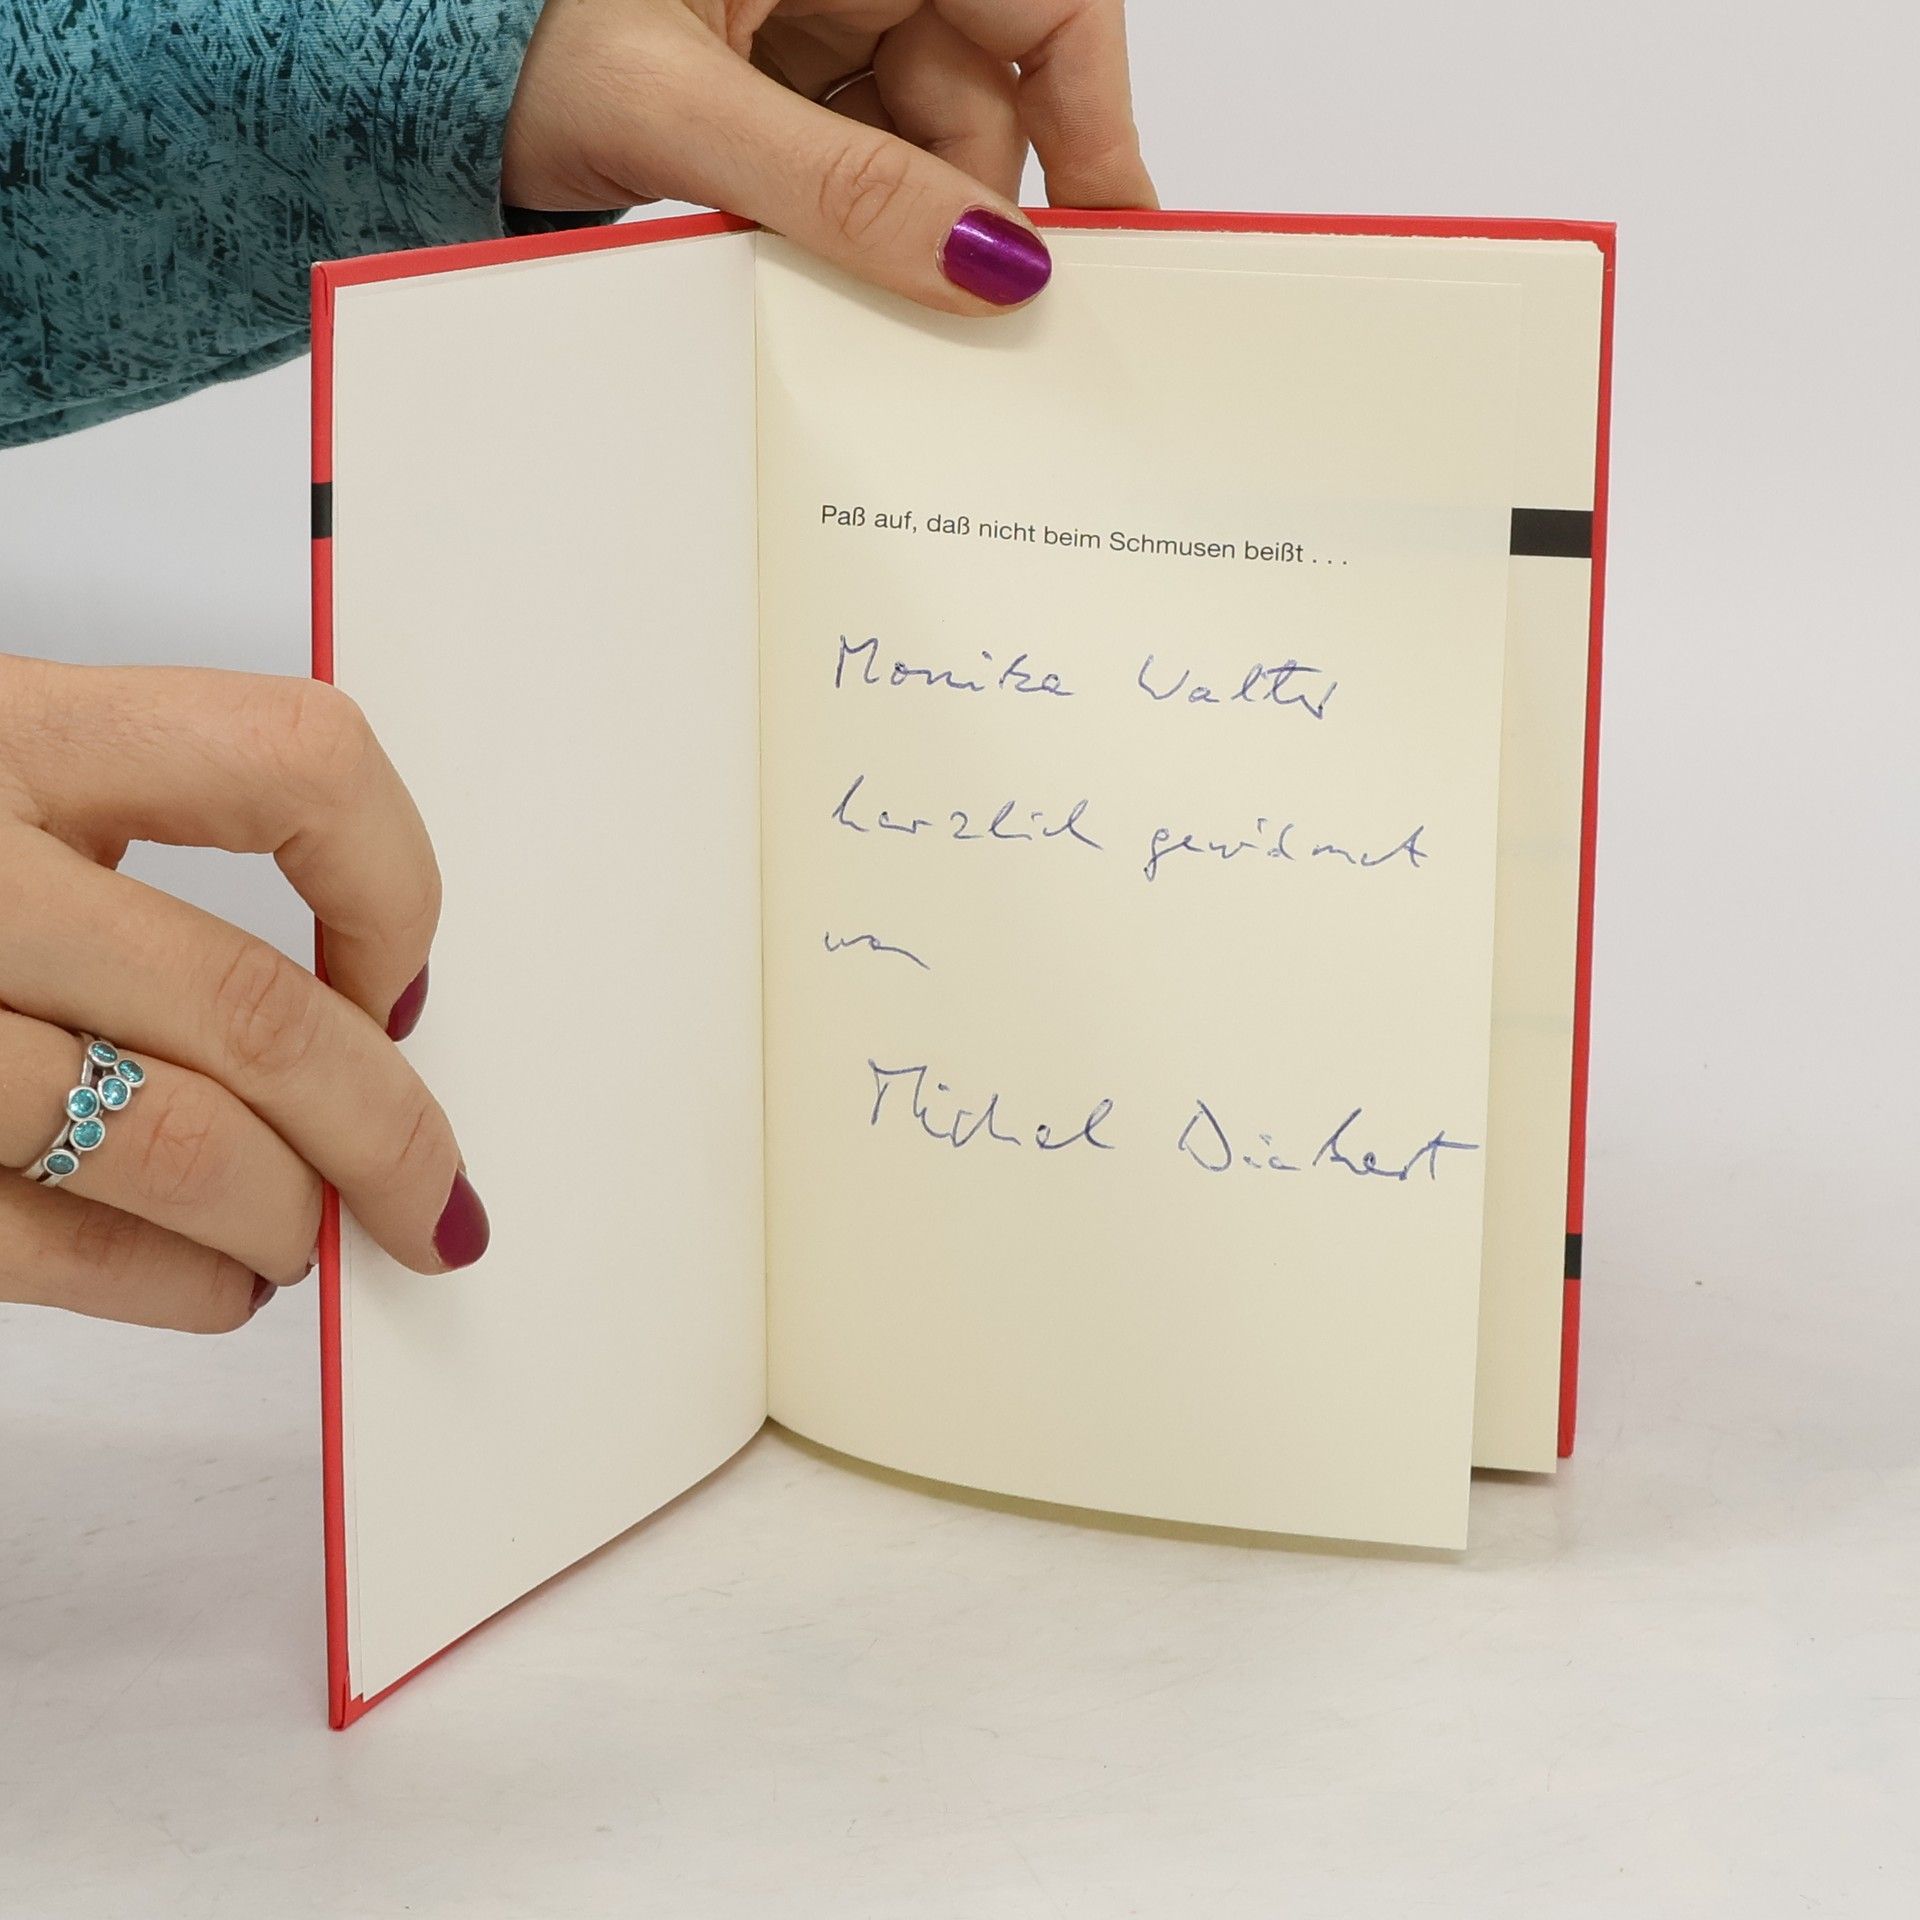 Paß auf, daß nicht beim Schmusen beißt . . .
Monika Walter
herzlich gewidmet
von
Michel Dickert